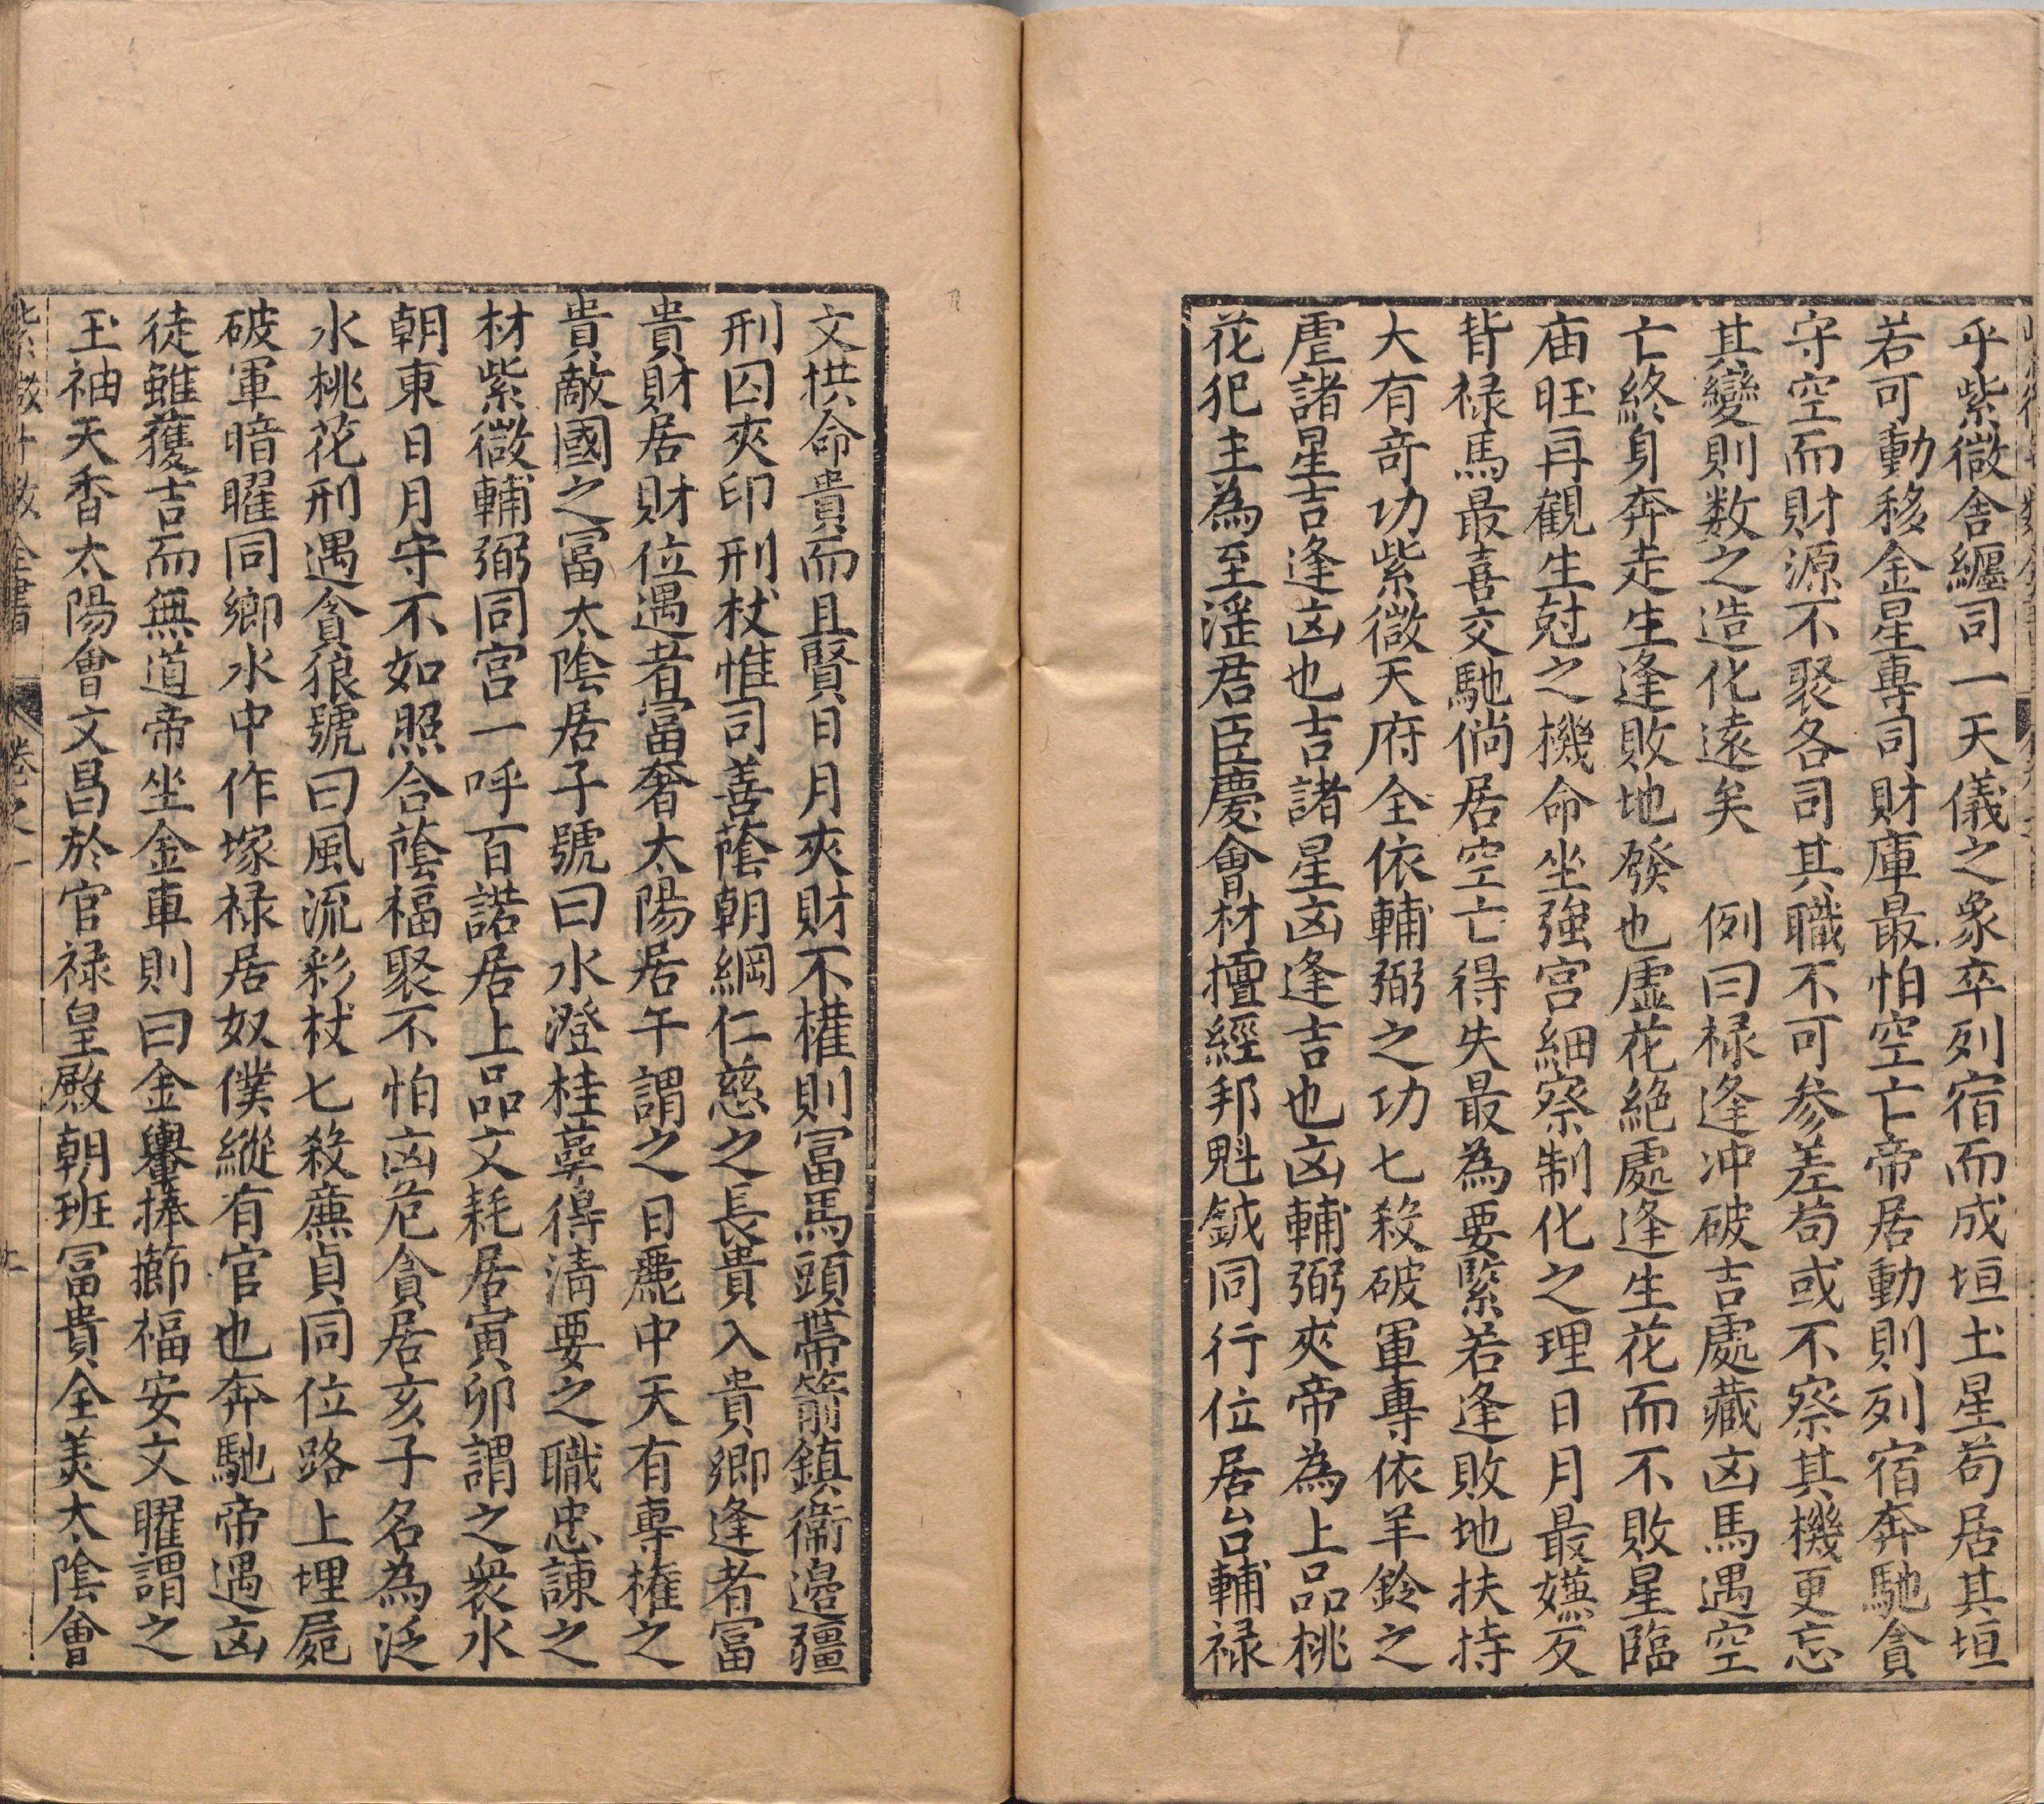 乎紫微舍纏司一天儀之象卒列宿而成垣土星苟居其垣
若可動移金星專司財庫最怕空亡帝居動則列宿奔馳貪
守空而財源不聚各司其職不可参差苟或不察其機更忘
其變則数之造化遠矣　例曰禄逢冲破吉處藏凶馬遇空
亡終身奔走生逢敗地發也虛花絶處逢生花而不敗星臨
庙旺再觀生尅之機命坐強宫細察制化之理日月最嫌反
背禄馬最喜交馳倘居空亡得失最為要緊若逢敗地扶持
大有竒功紫微天府全依輔弼之功七殺破軍專依羊鈴之
虐諸星吉逢凶也吉諸星凶逢吉也凶輔弼夾帝為上品桃
花犯主為至淫君臣慶會材擅經邦魁鉞同行位居台輔禄
文拱命貴而且賢日月夾財不權則冨馬頭帶箭鎮衛邉疆
刑囚夾印刑杖惟司善䕃朝綱仁慈之長貴入貴卿逢者冨
貴財居財位遇者富奢太陽居午謂之日麗中天有專權之
貴敵國之冨太陰居子號曰水澄桂蕚得清要之職忠諫之
材紫微輔弼同宫一呼百諾居上品文耗居寅卯謂之衆水
朝東日月守不如照合䕃福聚不怕凶危貪居亥子名為泛
水桃花刑遇貪狼號曰風流彩杖七殺㢘貞同位路上埋屍
破軍暗曜同鄉水中作塚禄居奴僕縱有官也奔馳帝遇凶
徒雖獲吉而無道帝坐金車則曰金轝捧櫛福安文曜謂之
玉袖天香太陽會文昌於官禄皇殿朝班冨貴全美太陰會
紫微斗数全書　卷之一